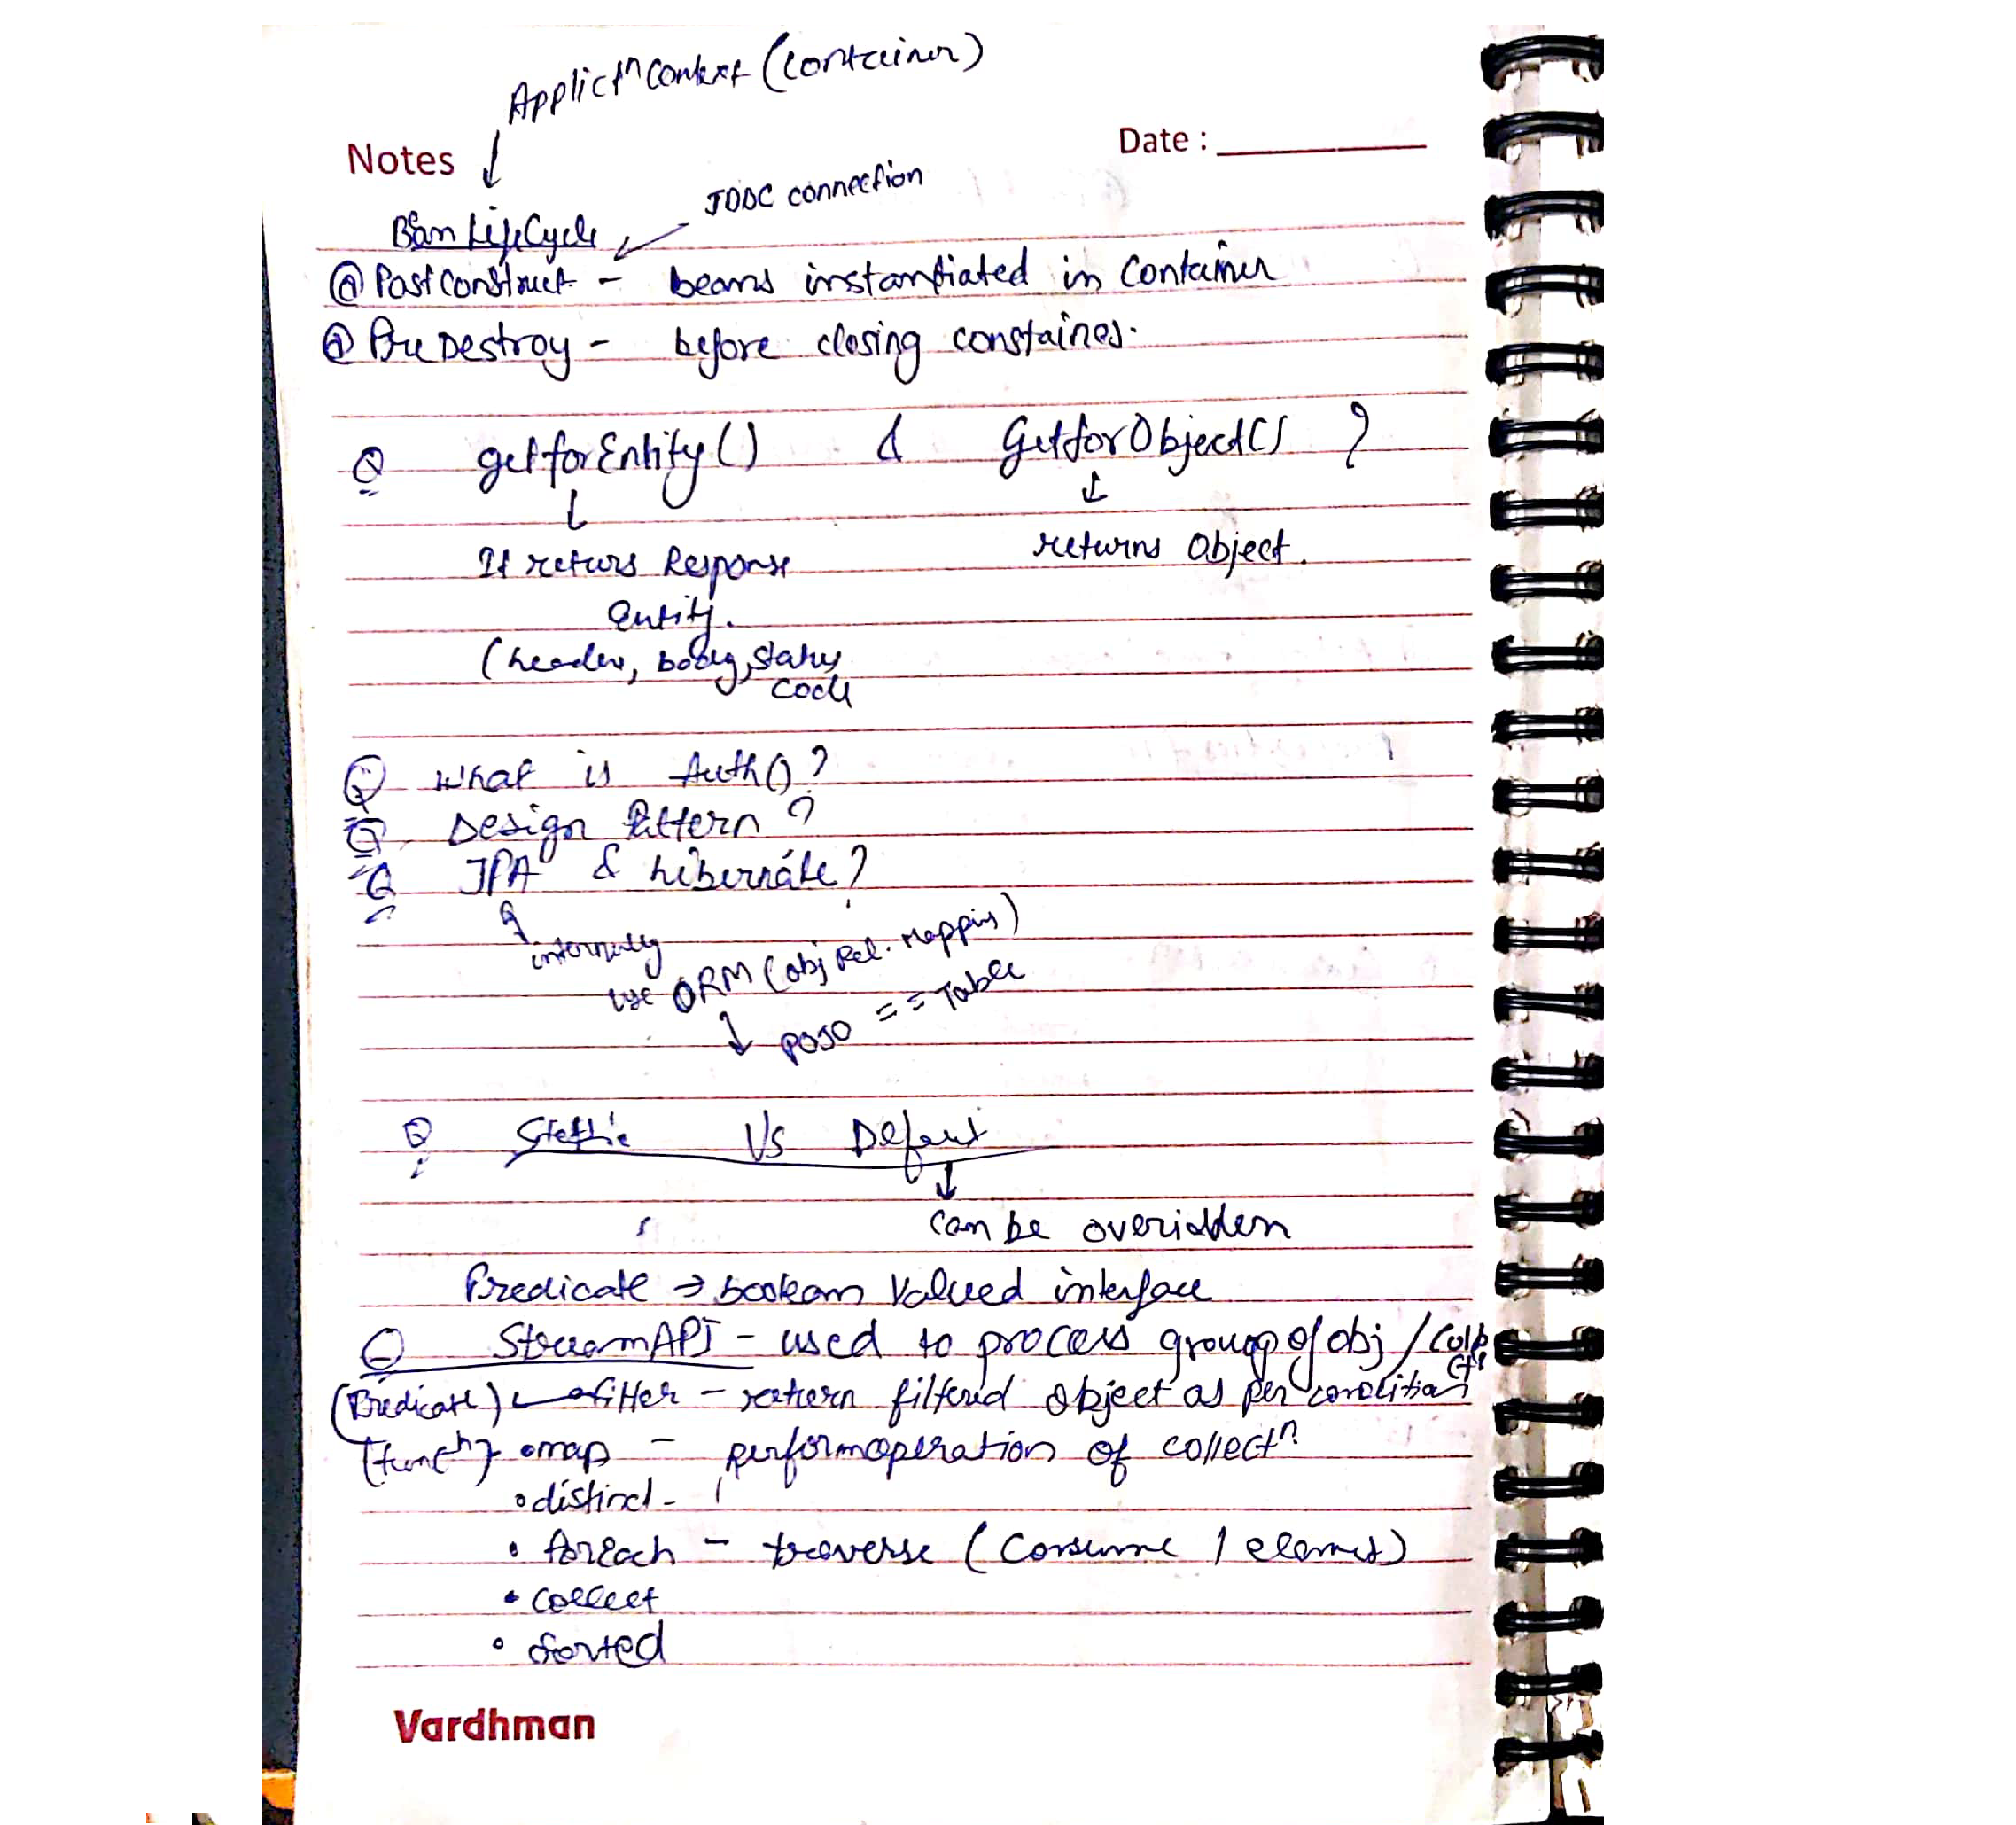 Applictn Context (Container)
Notes
Date :
JDBC connection
Bean LifeCycle
@PostConstruct - beans instantiated in Container
@PreDestroy - before closing constaines.
Q getforEntity() & GetforObject() ?
It returs Response
Entity.
returns Object.
(header, body, status
code
Q What is Auth()?
Q Design Pattern ?
Q JPA & hibernate?
internally
use ORM (obj Rel. Mapping)
POJO == Table
Q Static Vs Default
can be overidden
Predicate → boolean Valued interface
Q StreamAPI - used to process group of obj /
(Predicate) filter - return filtered Object as per condition
[funcn] • map - perform operation of collectn
• distinct -
• forEach - traverse (Consume 1 element)
• collect
• sorted
Vardhman